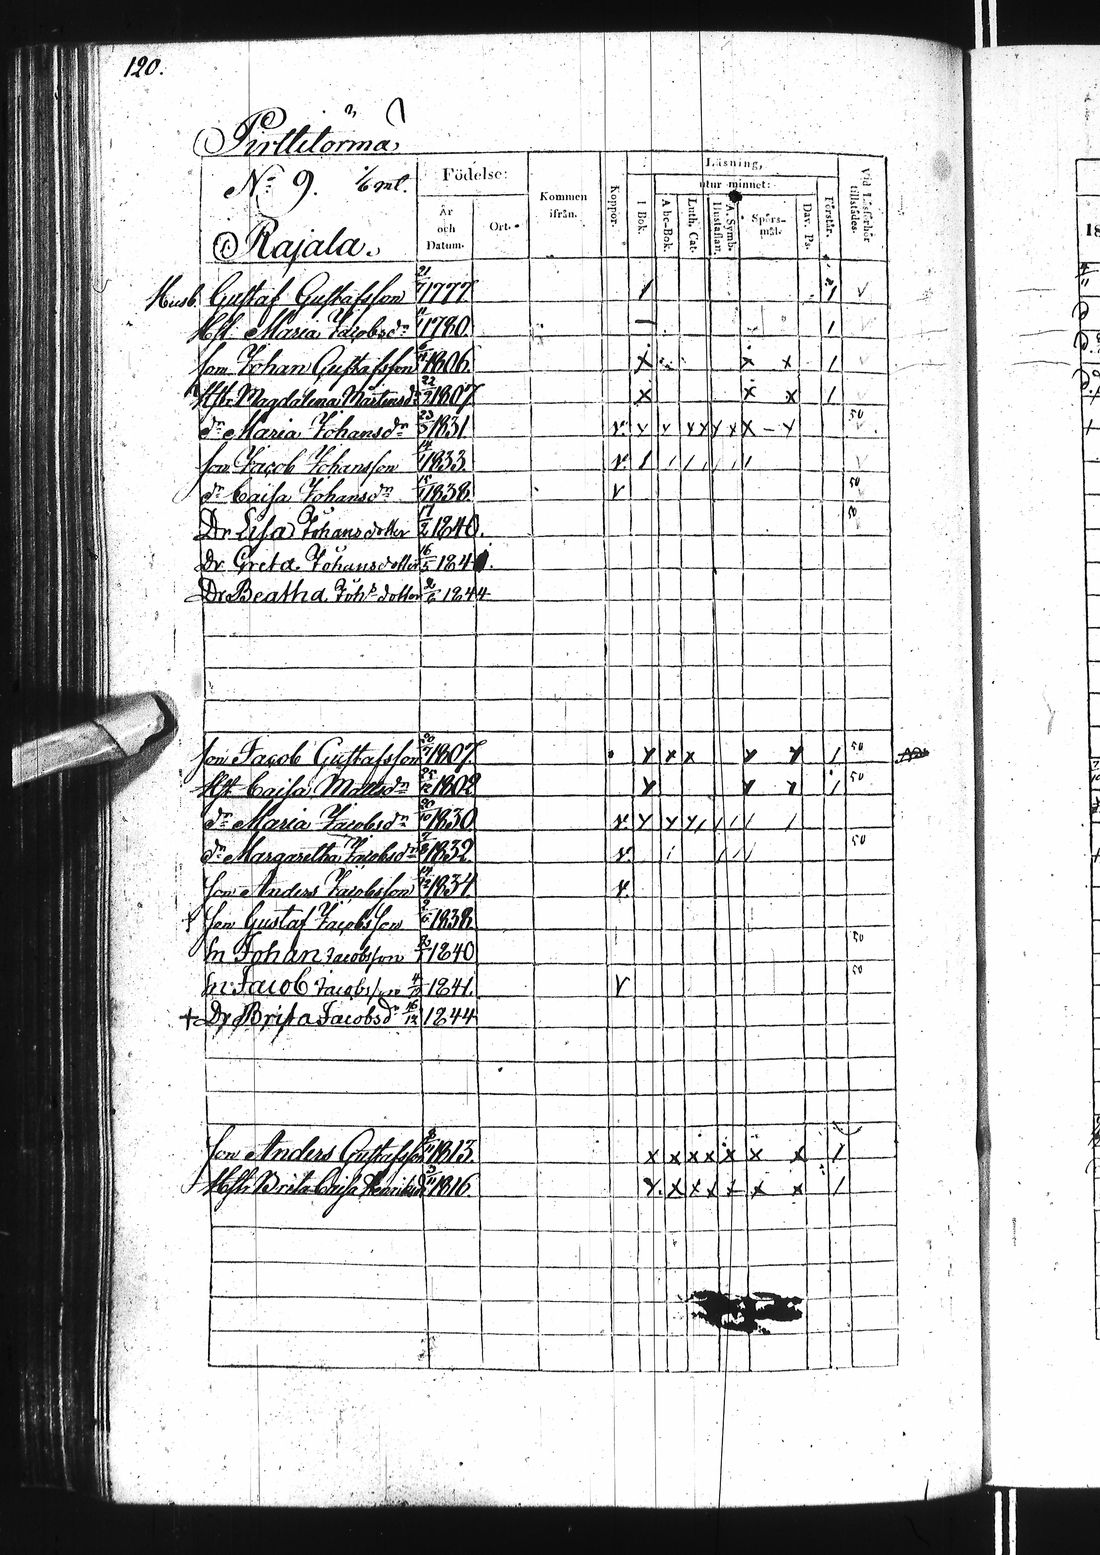 120.
Pirttitörmä
No 9. 1/6 ml.
Rajala.
Födelse:
År och Datum.
Ort.
Kommen ifrån.
Koppor.
Läsning,
I Bok.
utur minnet:
Abc-Bok.
Luth. Cat.
A. Symb. Hustaflan.
Spörs-mål.
Dav. Ps.
Förstår.
Vid Läsförhör tillstädes.
Husb. Gustaf Gustafsson 21/7 1777
Hst. Maria Jacobsdr 1780
Son Johan Gustafsson 1806
Hstr Magdalena Mårtensdr 22/7 1807
dr Maria Johansdr 1831 50
Son Jacob Johansson 1833
dr Caisa Johansdr 1838 50
Dr Lisa Johansdotter 17/2 1840.
Dr Greta Johansdotter 16/5 184
Dr Beatha Johsdotter 2/6 1844
Son Jacob Gustafsson 1807 50
Hst Caisa Mattsdr 1802 50
dr Maria Jacobsdr 20/10 1830
dr Margaretha Jacobsdr 1832 50
Son Anders Jacobsson 1834
Son Gustaf Jacobsson 1838
Sn Johan Jacobsson 1840 50
Sn Jacob Jacobsson 1841. 50
+ Dr Brita Jacobsdr 16/12 1844
Son Anders Gustafsson 1813
Hstr Brita Caisa Henriksdr 1816